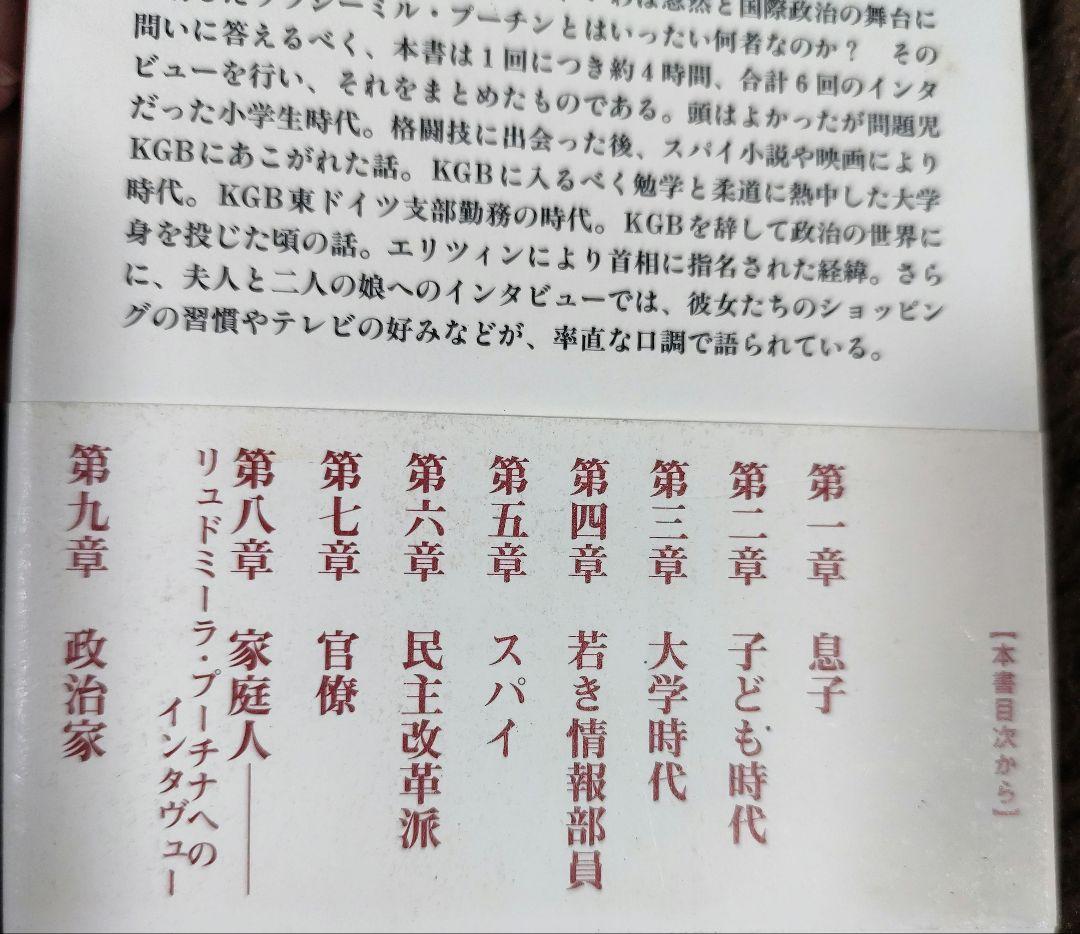 は忽然と国際政治の舞台に
ラジーミル・プーチンとはいったい何者なのか？　その
問いに答えるべく、本書は1回につき約4時間、合計6回のインタ
ビューを行い、それをまとめたものである。頭はよかったが問題児
だった小学生時代。格闘技に出会った後、スパイ小説や映画により
KGBにあこがれた話。KGBに入るべく勉学と柔道に熱中した大学
時代。KGB東ドイツ支部勤務の時代。KGBを辞して政治の世界に
身を投じた頃の話。エリツィンにより首相に指名された経緯。さら
に、夫人と二人の娘へのインタビューでは、彼女たちのショッピン
グの習慣やテレビの好みなどが、率直な口調で語られている。
【本書目次から】
第一章　息子
第二章　子ども時代
第三章　大学時代
第四章　若き情報部員
第五章　スパイ
第六章　民主改革派
第七章　官僚
第八章　家庭人――
リュドミーラ・プーチナへの
インタヴュー
第九章　政治家